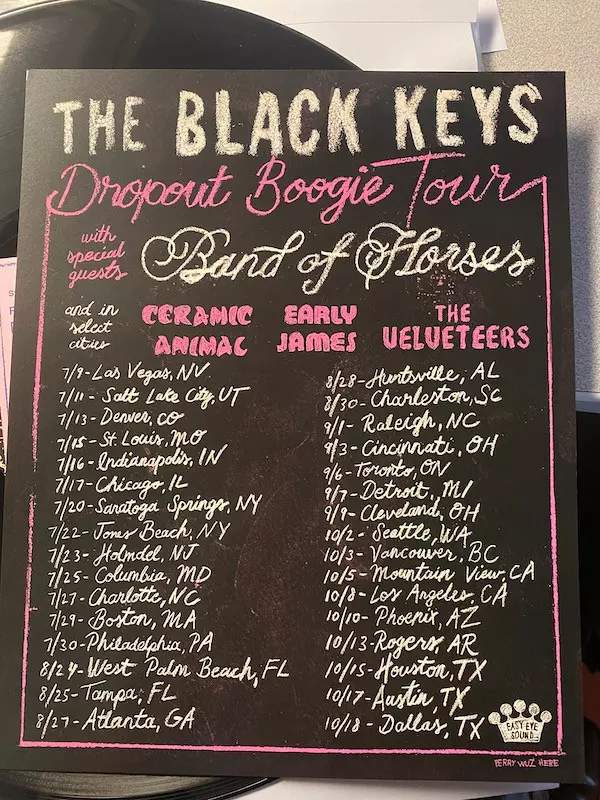 THE BLACK KEYS
Dropout Boogie Tour
with special guests
Band of Horses
and in select cities
CERAMIC ANIMAL
EARLY JAMES
THE VELVETEERS
7/9-Las Vegas, NV
7/11- Salt Lake City, UT
7/13- Denver, CO
7/15- St. Louis, MO
7/16- Indianapolis, IN
7/17- Chicago, IL
7/20- Saratoga Springs, NY
7/22- Jones Beach, NY
7/23- Holmdel, NJ
7/25- Columbia, MD
7/27- Charlotte, NC
7/29- Boston, MA
7/30-Philadelphia, PA
8/24- West Palm Beach, FL
8/25-Tampa, FL
8/27- Atlanta, GA
8/28-Huntsville, AL
8/30- Charleston, SC
9/1- Raleigh, NC
9/3- Cincinnati, OH
9/6- Toronto, ON
9/7- Detroit, MI
9/9- Cleveland, OH
10/2- Seattle, WA
10/3- Vancouver, BC
10/5- Mountain View, CA
10/8- Los Angeles, CA
10/10- Phoenix, AZ
10/13-Rogers, AR
10/15-Houston, TX
10/17-Austin, TX
10/18- Dallas, TX
EASY EYE
SOUND
PERRY WUZ HERE